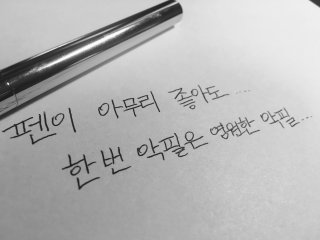 펜이 아무리 좋아도 ....
한번 악필은 영원한 악필...